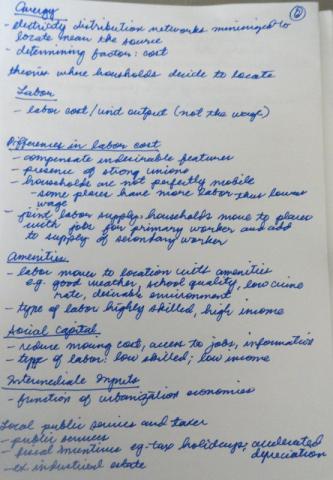 Energy
6
- electricity distribution networks minimized to
locate near the source
- determining factor: cost
theories where households decide to locate
Labor
- labor cost/unit output (not the wage)
Differences in labor cost
- compensate undesirable features
- presence of strong unions
- households are not perfectly mobile
- some places have more labor thus lower
wage
- joint labor supply: households move to places
with jobs for primary worker and add
to supply of secondary worker
Amenities
- labor moves to location with amenities
e.g. good weather, school quality, low crime
rate, desirable environment
- type of labor highly skilled, high income
Social Capital
- reduce moving cost, access to jobs, information
- type of labor: low skilled; low income
Intermediate Inputs
- function of urbanization economies
Local public services and taxes
- public services
- fiscal incentives eg-tax holidays; accelerated
depreciation
- ex industrial estate